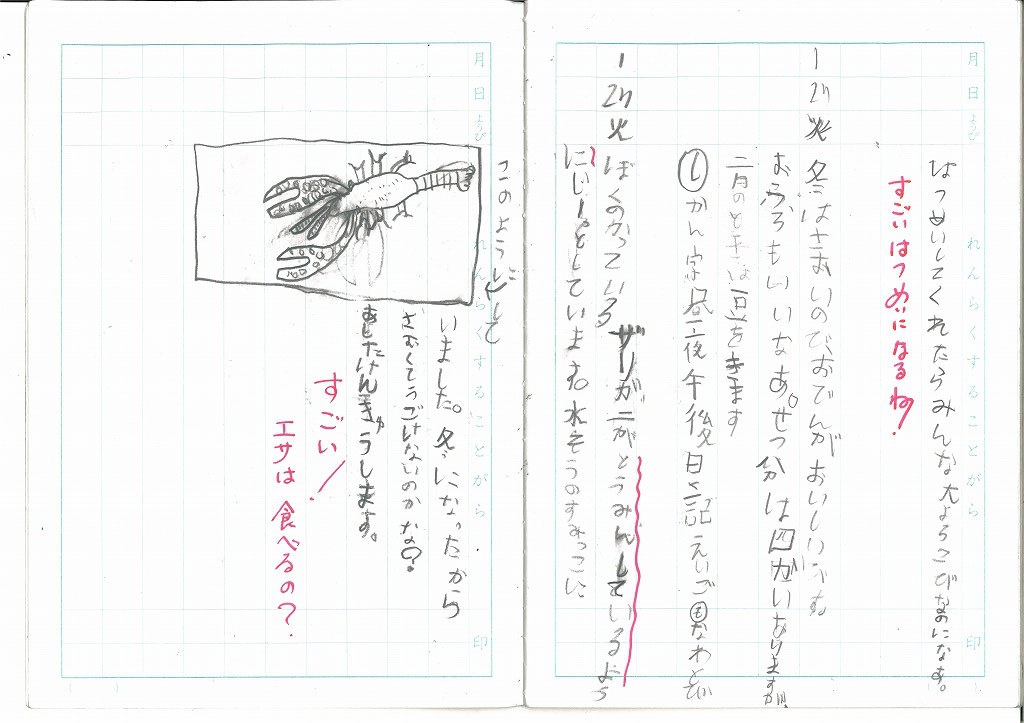 月 日 ようび れんらくすることがら 印
はつめいしてくれたらみんな大よろこびなのになあ。
すごいはつめいになるね!
1 27 火 冬はさむいのでおでんがおいしいです
おふろもいいなあ。せつ分は四がいあります
二月のときは豆をまきます
かん字 昼 夜 午後 日記 えいご なわとび
1 27 火 ぼくのかっている ザリガニがとうみんしているよう
にじーっとしています。水そうのすみっこに
月 日 ようび れんらくすることがら 印
このようにして
いました。冬になったから
さむくてうごけないのかな?
またけんきゅうします。
すごい!
エサは食べるの?